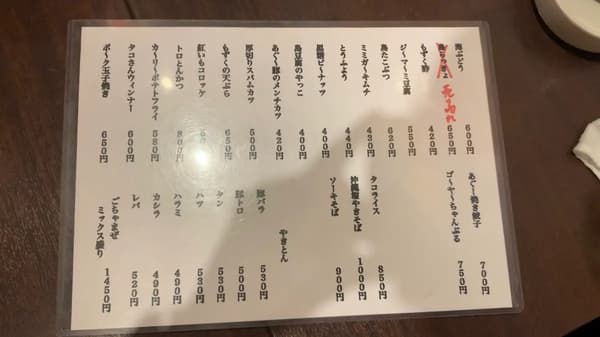 海ぶどう 600円
島らっきょ 650円
売切れ
もずく酢 420円
ジ～マ～ミ豆腐 550円
島たこぶつ 620円
ミミガ～キムチ 430円
とうふよう 440円
黒糖ピ～ナッツ 400円
島豆腐のやっこ 400円
あぐ～豚のメンチカツ 420円
厚切りスパムカツ 500円
もずくの天ぷら 650円
紅いもコロッケ
トロとんかつ 800円
カ～リ～ポテトフライ 580円
タコさんウィンナー 600円
ポ～ク玉子焼き 650円
あぐー焼き餃子 700円
ゴ～ヤ～ちゃんぷる 750円
タコライス 850円
沖縄塩やきそば 1000円
ソ～キそば 900円
やきとん
豚バラ 530円
豚トロ 500円
タン 530円
ハツ 530円
ハラミ 490円
カシラ 490円
レバ 520円
ごちゃまぜ
ミックス盛り 1450円